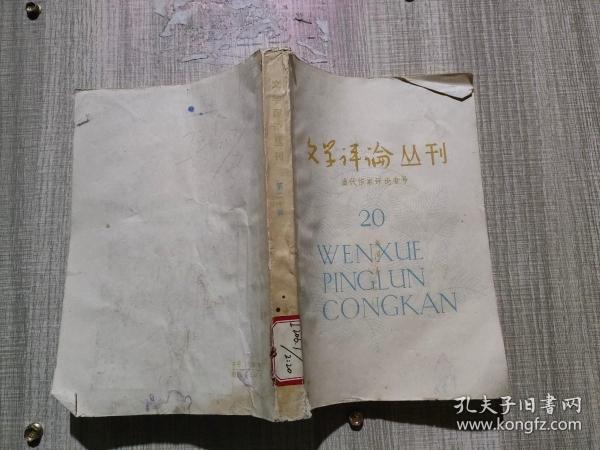 文学评论丛刊
当代作家评论专号
20
WENXUE
PINGLUN
CONGKAN
文学评论丛刊
I206.1
2:20
孔夫子旧书网
www.kongfz.com